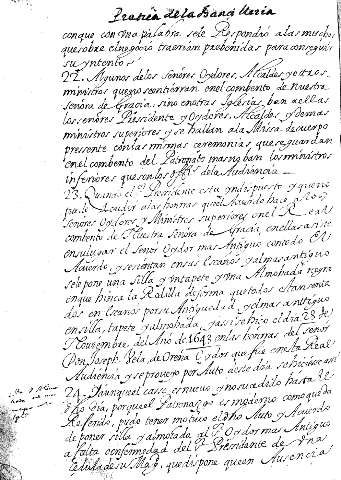 Practica de la Chancilleria
conque con una palabra, se le Respondio a las muchas
que sobre el negocio traenian prebenidas para conseguir
su yntento
22. Algunos de los señores Oydores, Alcaldes, y otros
ministros que no se entierran en el combento de Nuestra
Señora de Gracia, sino en otras Iglesias, ban a ellas
los señores Presidente y Oydores, Alcaldes, y demas
ministros superiores y se hallan a la Missa de cuerpo
presente con las mismas ceremonias que se guardan
en el combento del Patronato mas no ban los ministros
inferiores que son los de la Audiencia
23. Quando el Presidente esta yndispuesto y que no
puede Acudir a las honras que el Acuerdo hace a los
Señores Oydores, y Ministros superiores en el Real
combento de Nuestra Señora de Gracia, en ellas asiste
en su lugar el Señor Oydor mas Antiguo con todo el
Acuerdo, y se sientan en sus Escaños y al mas antiguo
se le pone una Silla y un tapete y una Almohada negra
en que hinca la Rodilla de forma que todos estan senta
dos en Escaños por su Antiguedad y el mas antiguo
en silla, tapete y almohada, y assi se hizo el dia 28 de
Noviembre, del Año de 1643 en las honras del señor
Don Joseph Vela de Oreña Oydor que fue en esta Real
Audiencia y se proveyo por Auto deste dia
24. Y aunque el caso es nuevo y no sucedido hasta el
dho dia, por que el Patronazgo es moderno como queda
Referido, pudo tener motivo el dho Auto y Acuerdo
de poner silla y almohada al Oydor mas Antiguo
a falta o enfermedad del Presidente de una
cedula de su Mag. que dispone que en Ausencia